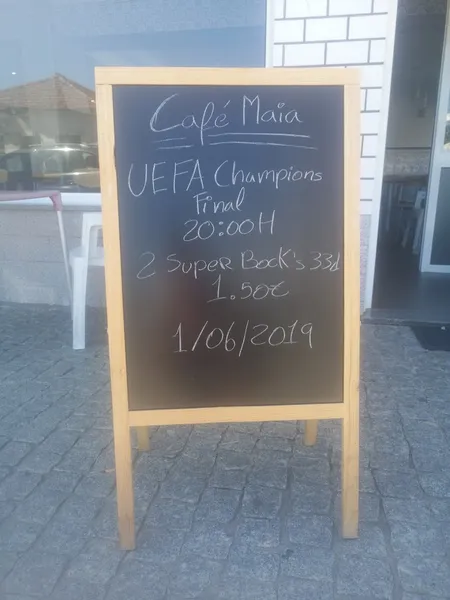 Café Maia
UEFA Champions
Final
20:00H
2 Super Bock's 33cl
1.50€
1/06/2019